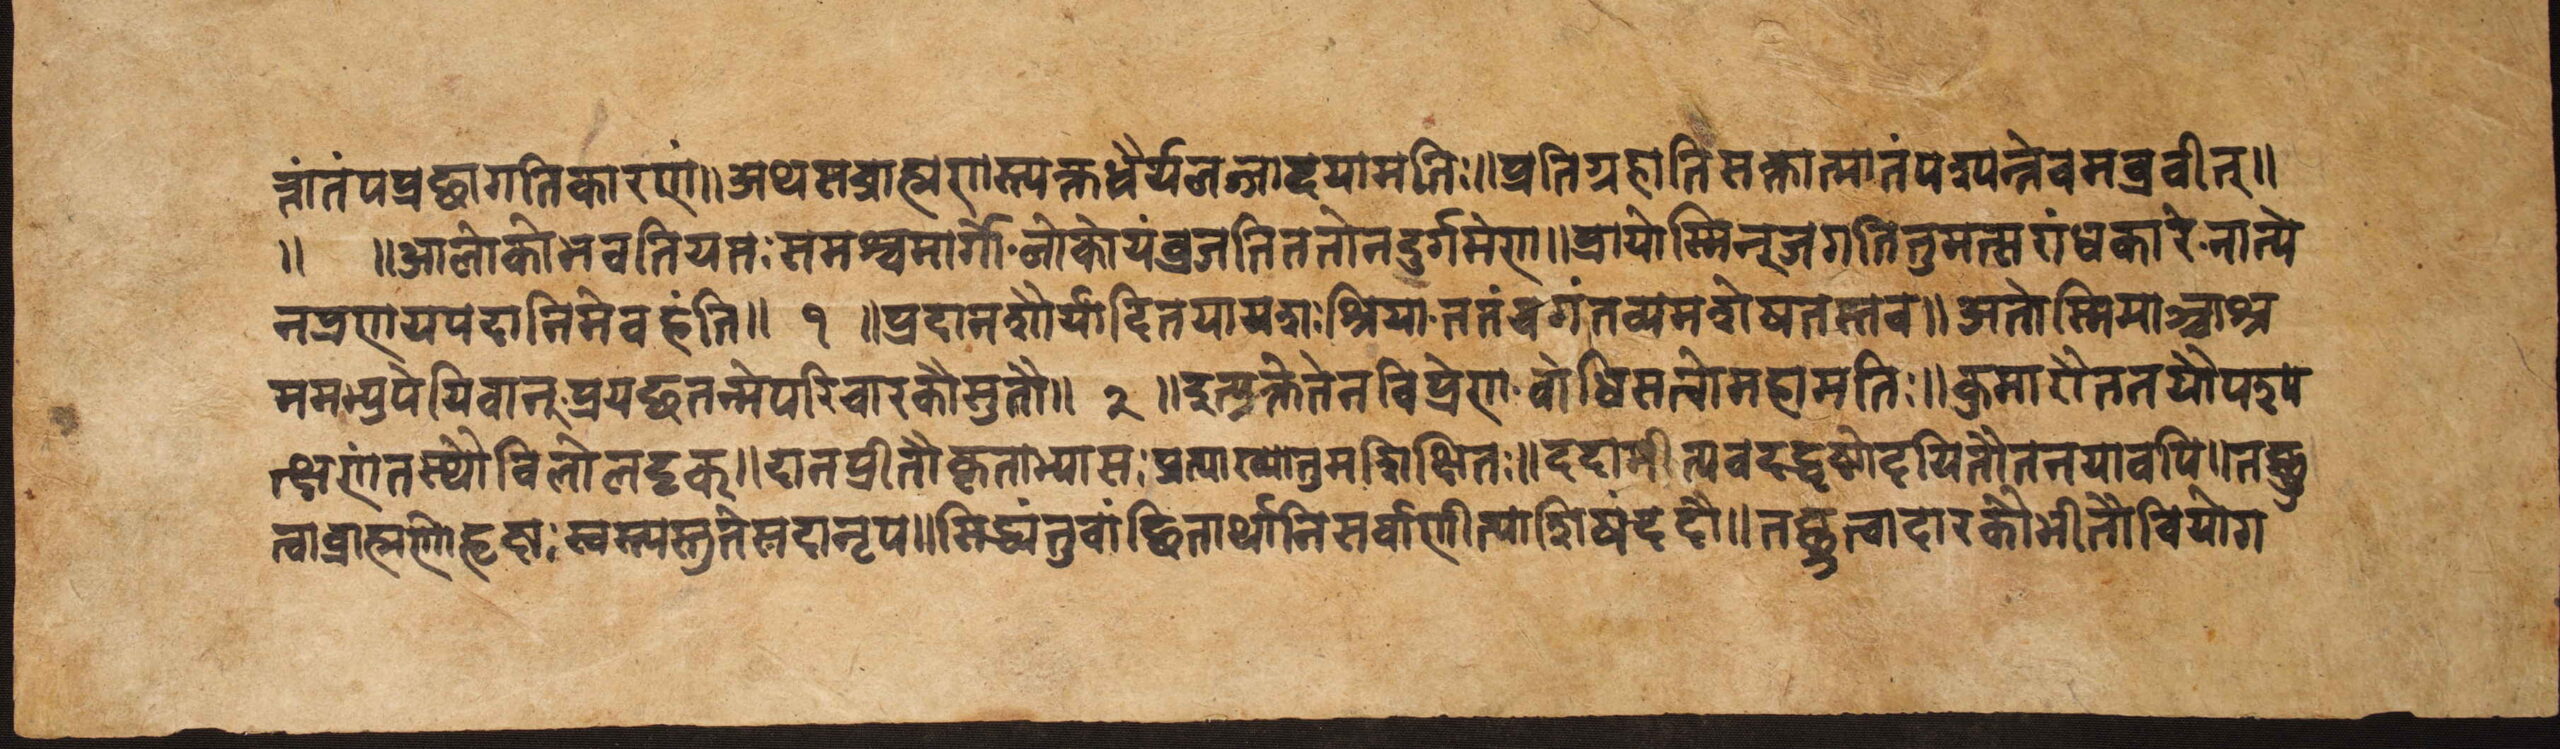 त्रांतंपप्रछागतिकारणं॥अथसब्राह्मणस्त्यक्तधैर्यलज्जादयामतिः॥प्रतिग्रहातिसक्तात्मातंपश्यन्नेवमब्रवीत्॥
॥ ॥आलोकोभवतियतःसमश्चमार्गो·लोकोयंव्रजतिततोनदुर्गमेण॥प्रायोस्मिन्जगतितुमत्सरांधकारे·नान्ये
नप्रणयपदानिमेवहंति॥ १ ॥प्रदानशौर्यादितयायशःश्रिया·गतंचगंतव्यमशेषतस्तव॥अतोस्मियाञ्चाश्र
ममभ्युपेयिवान्·प्रयछतन्मेपरिचारकौसुतौ॥ २ ॥इत्युक्तेतेनविप्रेण·बोधिसत्वोमहामतिः॥कुमारौतनयौपश्य
न्क्षणंतस्थौविलोलदृक्॥दानप्रीतौकृताभ्यासःप्रत्याख्यातुमशिक्षितः॥ददामीत्यवदद्धृष्टोदयितौतनयावपि॥तछ्रु
त्वाब्राह्मणोहृष्टःस्वस्त्यस्तुतेसदानृप॥सिद्ध्यंतुवांछितार्थानिसर्वाणीत्याशिषंददौ॥तछ्रुत्वादारकौभीतौवियोग